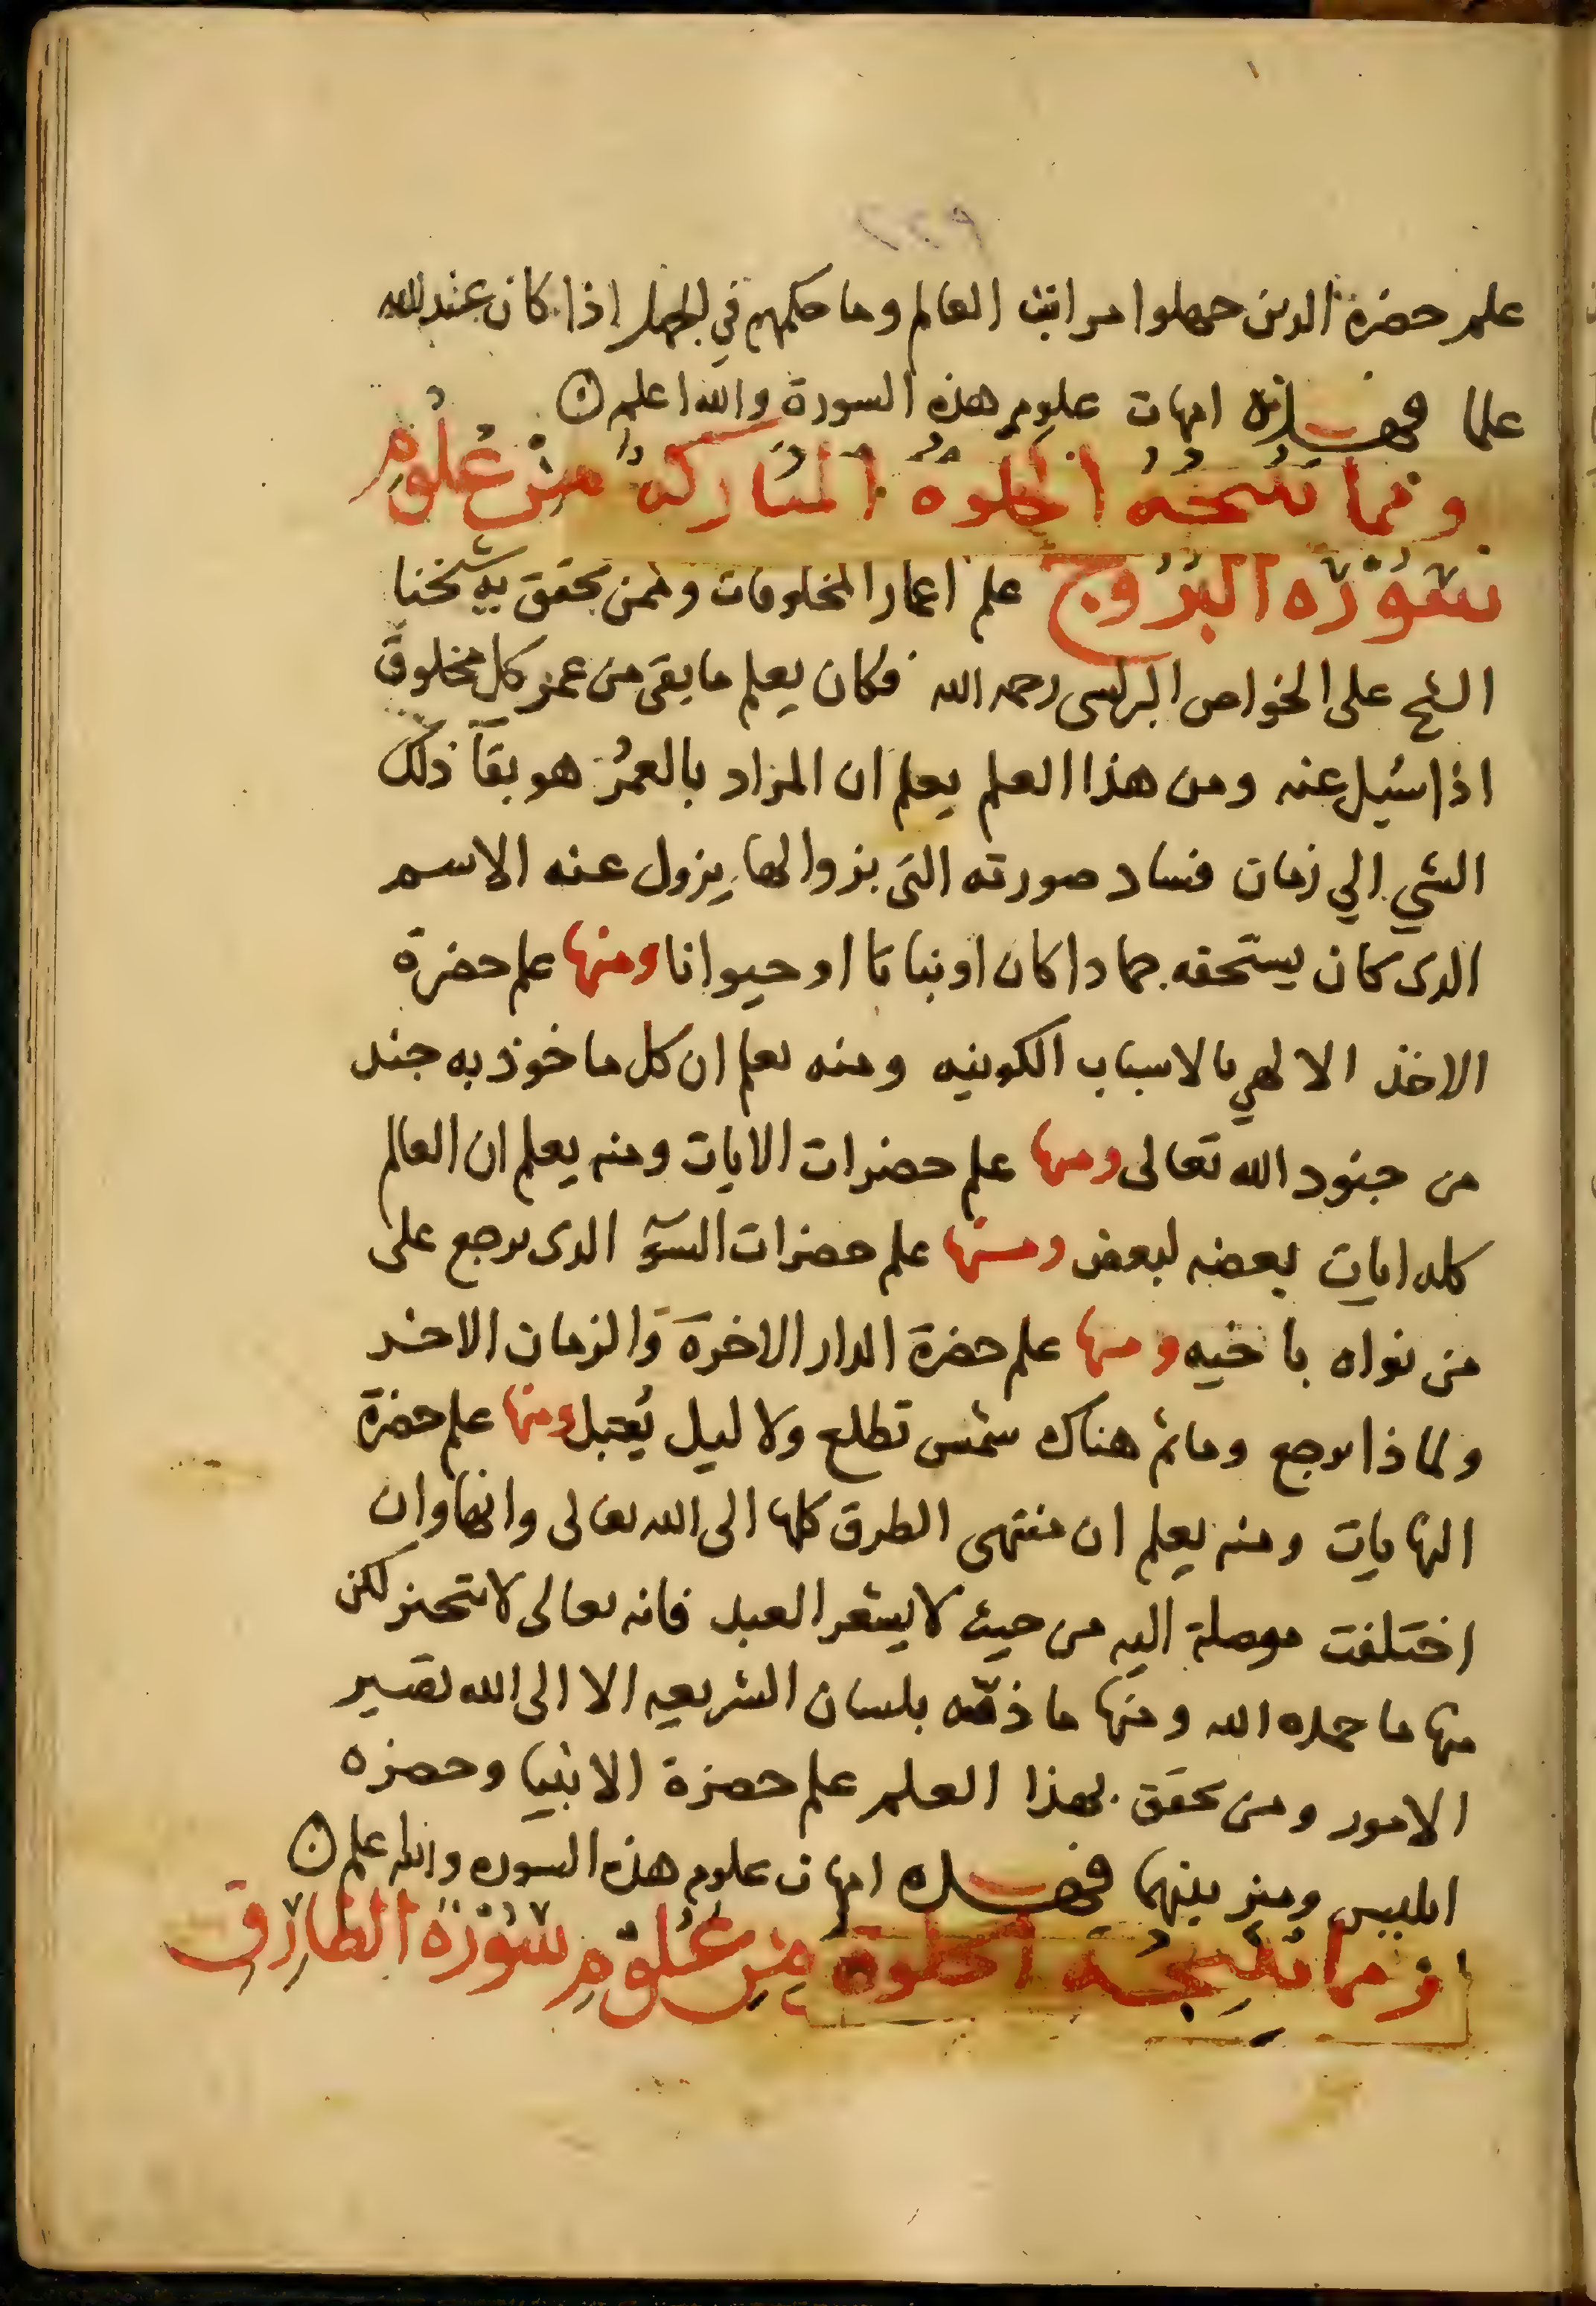 علم حضرة الذين جهلوا مراتب العالم وما حكمهم في الجهل اذا كان عند الله
علما فهذه امهات علوم هذه السورة والله اعلم
ومما تنتجه الخلوة المباركة من علوم
سورة البروج علم اعمار المخلوقات وممن تحقق به شيخنا
الشيخ على الخواص البرلسى رحمه الله فكان يعلم ما بقى من عمر كل مخلوق
اذا سئيل عنه ومن هذا العلم يعلم ان المراد بالعمر هو بقآ ذلك
الشي الي زمان فساد صورته التى بزوالها يزول عنه الاسم
الذى كان يستحقه جمادا كان او نباتا او حيوانا ومنها علم حضرة
الاخذ الالهي بالاسباب الكونيه ومنه يعلم ان كل ماخوذ به جند
من جنود الله تعالى ومنها علم حضرات الايات ومنه يعلم ان العالم
كله ايات بعضه لبعض ومنها علم حضرات السوء الذى يرجع على
من نواه باخيه ومنها علم حضرة الدار الاخرة والزمان الاخر
ولماذا يرجع وما ثم هناك شمس تطلع ولا ليل يُقبل ومنها علم حضرة
النهايات ومنه يعلم ان منتهى الطرق كلها الى الله تعالى وانها وان
اختلفت موصلة اليه من حيث لا يشعر العبد فانه تعالى لا يتحيز لكن
منها ما حمده الله ومنها ما ذمّه بلسان الشريعه الا الى الله تصير
الامور ومن تحقق بهذا العلم علم حضرة الانبيا وحضره
ابليس وميز بينهما فهذه امهات علوم هذه السوره والله اعلم
ومما تنتجه الخلوة من علوم سورة الطارق